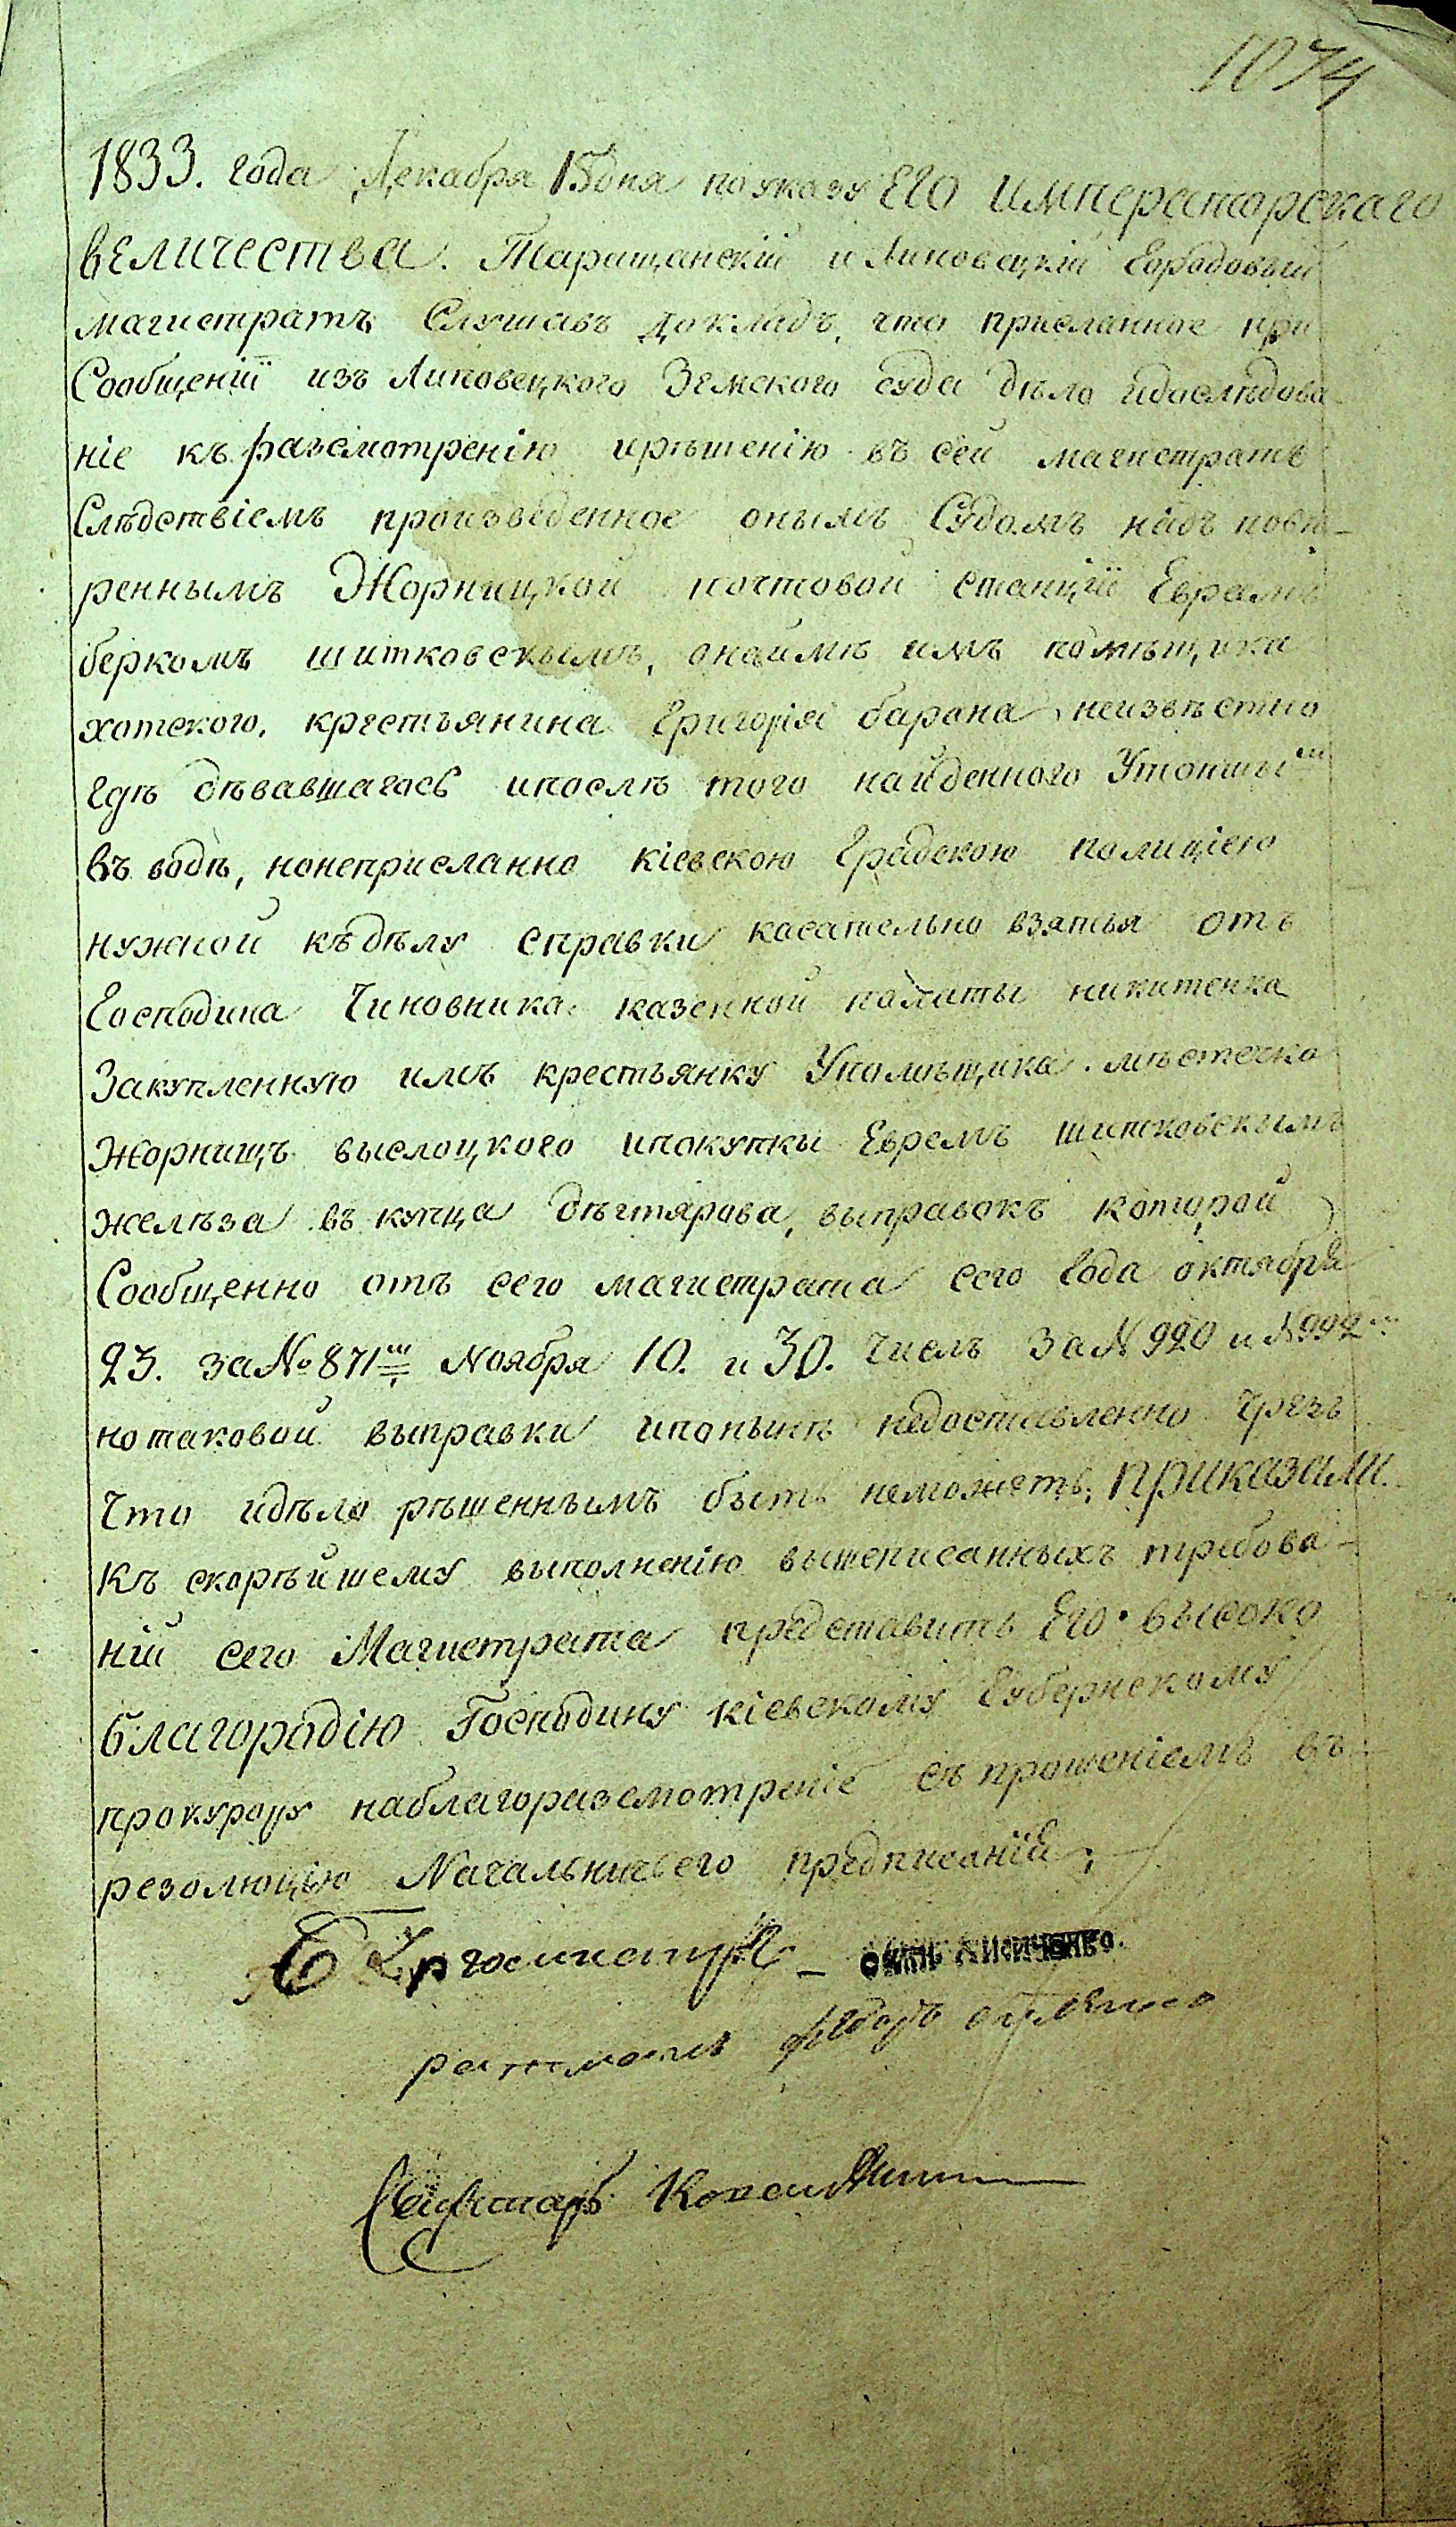 1074
1833. года Декабря 15 дня по указу ЕГО ИМПЕРАТОРСКАГО
ВЕЛИЧЕСТВА. Таращанскій и Липовецкій Городовый
магистратъ Слушавъ докладъ, что присланное при
Сообщеніи изъ Липовецкого Земского суда дѣло идослѣдова-
ніе къ разсмотренію ирѣшенію въ сей магистратъ
Слѣдствіемъ произведенное онымъ Судомъ надъ повѣ-
реннымъ Жорнищкой почтовой станціи Евреемъ
беркомъ шитковскымъ, онаймѣ имъ помѣщика
хотского, крестьянина Григорія барана, неизвѣстно
гдѣ дѣвавшагось ипослѣ того найденного Утопшы
въ водѣ, нонеприсланно кіевскою Градскою полиціею
нужной къ дѣлу справки касательно взятья отъ
Господина Чиновника казенной палаты никитенка
Закупленную имъ крестьянку Упомѣщика мѣстечка
Жорнищъ выслоцкого ипокупкы Евреемъ шитковскимъ
желѣза въ купца дѣгтярова, выправокъ которой
Сообщенно отъ сего магистрата сего года октября
23. за № 871 ноября 10. и 30. Числъ За N 920 и N 992
нотаковой выправки ипонынѣ недоставленно чрезъ
Что идѣло рѣшеннымъ быть неможетъ; ПРИКАЗАЛИ.
Къ скорѣйшему выполненію вышеписанныхъ требова-
ній сего Магистрата представить Его Высоко
Благородію Господину кіевскому Губернскому
прокурору наблагоразсмотреніе съ прошеніемъ въ
резолюцію Начальничьего предписанія;
Бургомистръ
ратманъ федоръ
Секретарь